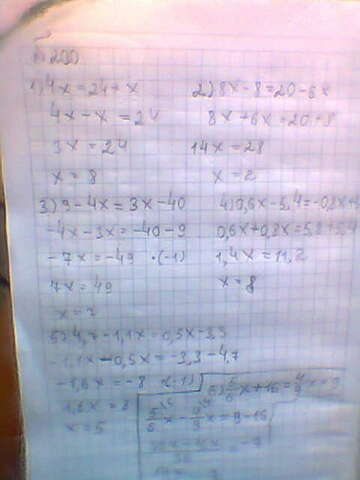 200
1) 4x = 24 + x
4x - x = 24
3x = 24
x = 8
2) 8x - 8 = 20 - 6x
8x + 6x = 20 + 8
14x = 28
x = 2
3) 9 - 4x = 3x - 40
-4x - 3x = -40 - 9
-7x = -49 ·(-1)
7x = 49
x = 7
4) 0,6x - 5,4 = -0,8x +
0,6x + 0,8x = 5,8 + 5,4
1,4x = 11,2
x = 8
5) 4,7 - 1,1x = 0,5x - 3,3
-1,1x - 0,5x = -3,3 - 4,7
-1,6x = -8 ·(-1)
1,6x = 8
x = 5
6) 5/6 x + 16 = 4/9 x + 9
5/6 x - 4/9 x = 9 - 16